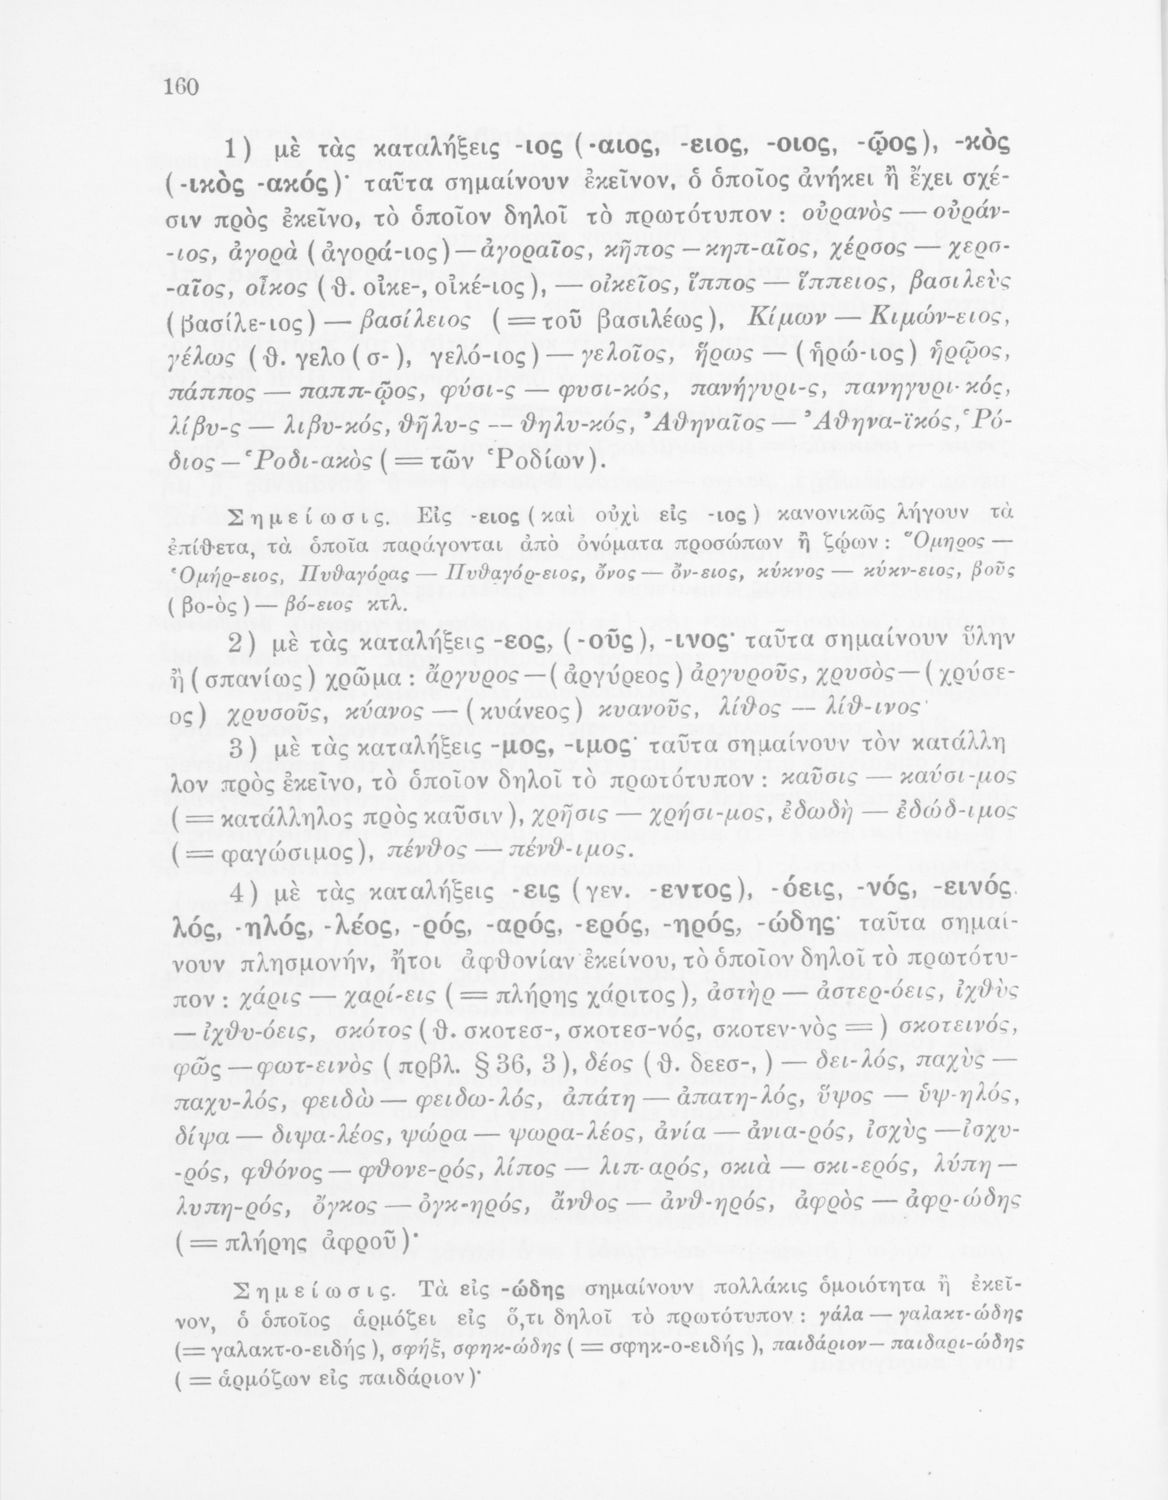 160
1) μὲ τὰς καταλήξεις -ιος (-αιος, -ειος, -οιος, -ῷος), -κὸς
(-ικὸς -ακός)· ταῦτα σημαίνουν ἐκεῖνον, ὁ ὁποῖος ἀνήκει ἢ ἔχει σχέ-
σιν πρὸς ἐκεῖνο, τὸ ὁποῖον δηλοῖ τὸ πρωτότυπον : οὐρανὸς — οὐράν-
-ιος, ἀγορὰ (ἀγορά-ιος) — ἀγοραῖος, κῆπος — κηπ-αῖος, χέρσος — χερσ-
-αῖος, οἶκος (θ. οἰκε-, οἰκέ-ιος), — οἰκεῖος, ἵππος — ἵππειος, βασιλεὺς
(βασίλε-ιος) — βασίλειος (= τοῦ βασιλέως), Κίμων — Κιμών-ειος,
γέλως (θ. γελο(σ-), γελό-ιος) — γελοῖος, ἥρως — (ἡρώ-ιος) ἡρῷος,
πάππος — παππ-ῷος, φύσι-ς — φυσι-κός, πανήγυρι-ς, πανηγυρι-κός,
λίβυ-ς — λιβυ-κός, θῆλυ-ς — θηλυ-κός, Ἀθηναῖος — Ἀθηνα-ϊκός, Ῥό-
διος — Ῥοδι-ακὸς (= τῶν Ῥοδίων).
Σημείωσις. Εἰς -ειος (καὶ οὐχὶ εἰς -ιος) κανονικῶς λήγουν τὰ
ἐπίθετα, τὰ ὁποῖα παράγονται ἀπὸ ὀνόματα προσώπων ἢ ζῴων : Ὅμηρος —
Ὁμήρ-ειος, Πυθαγόρας — Πυθαγόρ-ειος, ὄνος — ὄν-ειος, κύκνος — κύκν-ειος, βοῦς
(βο-ὸς) — βό-ειος κτλ.
2) μὲ τὰς καταλήξεις -εος, (-οῦς), -ινος· ταῦτα σημαίνουν ὕλην
ἢ (σπανίως) χρῶμα : ἄργυρος — (ἀργύρεος) ἀργυροῦς, χρυσὸς — (χρύσε-
ος) χρυσοῦς, κύανος — (κυάνεος) κυανοῦς, λίθος — λίθ-ινος·
3) μὲ τὰς καταλήξεις -μος, -ιμος· ταῦτα σημαίνουν τὸν κατάλλη
λον πρὸς ἐκεῖνο, τὸ ὁποῖον δηλοῖ τὸ πρωτότυπον : καῦσις — καύσι-μος
(= κατάλληλος πρὸς καῦσιν), χρῆσις — χρήσι-μος, ἐδωδὴ — ἐδώδ-ιμος
(= φαγώσιμος), πένθος — πένθ-ιμος.
4) μὲ τὰς καταλήξεις -εις (γεν. -εντος), -όεις, -νός, -εινός.
λός, -ηλός, -λέος, -ρός, -αρός, -ερός, -ηρός, -ώδης· ταῦτα σημαί-
νουν πλησμονήν, ἤτοι ἀφθονίαν ἐκείνου, τὸ ὁποῖον δηλοῖ τὸ πρωτότυ-
πον : χάρις — χαρί-εις (= πλήρης χάριτος), ἀστὴρ — ἀστερ-όεις, ἰχθὺς
— ἰχθυ-όεις, σκότος (θ. σκοτεσ-, σκοτεσ-νός, σκοτεν-νὸς =) σκοτεινός,
φῶς — φωτ-εινὸς (πρβλ. § 36, 3), δέος (θ. δεεσ-,) — δει-λός, παχὺς —
παχυ-λός, φειδὼ — φειδω-λός, ἀπάτη — ἀπατη-λός, ὕψος — ὑψ-ηλός,
δίψα — διψα-λέος, ψώρα — ψωρα-λέος, ἀνία — ἀνια-ρός, ἰσχὺς — ἰσχυ-
-ρός, φθόνος — φθονε-ρός, λίπος — λιπ-αρός, σκιὰ — σκι-ερός, λύπη —
λυπη-ρός, ὄγκος — ὀγκ-ηρός, ἄνθος — ἀνθ-ηρός, ἀφρὸς — ἀφρ-ώδης
(= πλήρης ἀφροῦ)·
Σημείωσις. Τὰ εἰς -ώδης σημαίνουν πολλάκις ὁμοιότητα ἢ ἐκεῖ-
νον, ὁ ὁποῖος ἁρμόζει εἰς ὅ,τι δηλοῖ τὸ πρωτότυπον : γάλα — γαλακτ-ώδης
(= γαλακτ-ο-ειδής), σφήξ, σφηκ-ώδης (= σφηκ-ο-ειδής), παιδάριον — παιδαρι-ώδης
(= ἁρμόζων εἰς παιδάριον)·